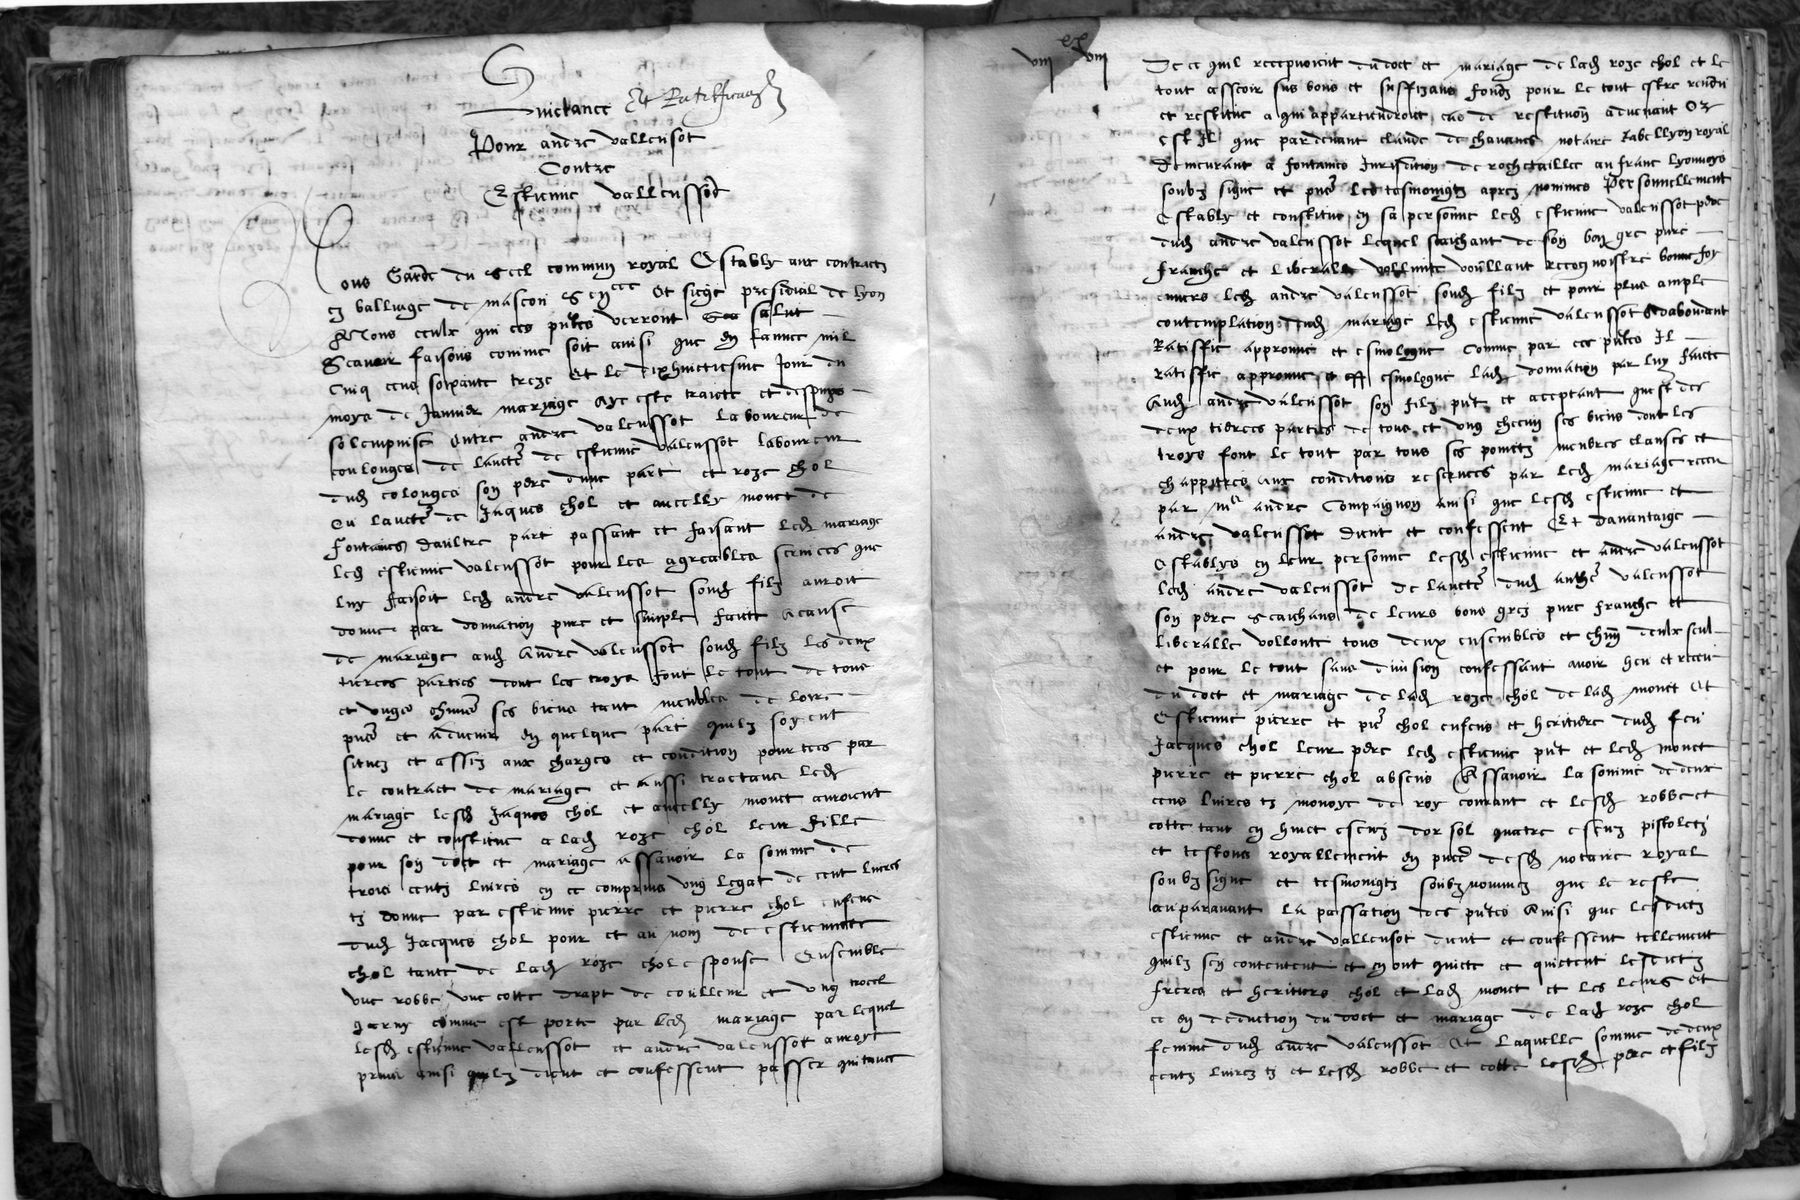 Quictance Et Ratifficaon
Pour andre vallensot
Contre
Estienne vallenssot
Nous Garde du Seel commun royal Estably aux contractz
es balliage de mascon Sen.cee Et siege presidial de lyon
A Tous ceulx qui ces pntes verront salut
Scavoir faisons comme soit ainsi que en lannee mil
Cinq cens soixante treze Et le dixhuictiesme Jour du
moys de Janvier mariage aye este traicte et despuys
solempnise entre andre valenssot laboureur de
coulonges de lauctte de estienne valenssot laboureur
dud colonges son pere dune part et roze chol
En lauctte de Jaques chol et ancelly monet de
Fontaines daultre part passant et faisant led mariage
led estienne valenssot pour les agreables services que
luy faisoit led andre valenssot soud filz auroit
donne par donnation pure et simple faict a cause
de mariage aud Andre valenssot soud filz les deux
tierces parties dont les troys font le tout de tous
et ungs chune ses biens tant meubles de lors
pnte et advenir en quelque part quilz soyent
situez et assiz aux charges et condition portees par
le contract de mariage et aussi tractant led
mariage lesd Jaques chol et ancelly monet auroient
donne et constitue a lad roze chol leur fille
pour son doct et mariage assavoir la somme de
trois centz livres en ce comprins ung legat de cent livres
tz donne par estienne pierre et pierre chol enfens
dud Jacques chol pour et au nom de estiennette
chol tante de lad roze chol espouse Ensemble
une robbe une cotte drapt de coulleur et ung trocel
garny comme est porte par led mariage par lequel
lesd estienne vallenssot et andre valenssot auroyt
promi ainsi quilz dient et confessent passer quitance
viii xx viii
De ce quil recepvoient du doct et mariage de lad roze chol et le
tout asseoir sus bons et suffizans fondz pour le tout estre rendu
et restitue a qui appartiendroict cas de restituon advenant Or
est Il que pardevant claude de chavanes notaire tabellyon royal
demeurant a fontaines Jurisdition de rochetaillee au franc lyonnoys
soubz signe et pnce les tesmoingtz aprez nommes Personnellement
Estably et constitue en sa personne led estienne valenssot pere
dud andre valenssot lequel saichant de son bon gre pure
franche et liberalle vollonte voullant recognoistre bonne foy
envers led andre valenssot soud filz et pour plus ample
contemplation dud mariage led estienne valenssot dabondant
Ratiffie appreuve et esmologue Comme par ces pntes Il
ratiffie appreuve et esmologue lad donnation par luy faicte
Aud andre valenssot son filz pnt et acceptant questz des
deux tierces parties de tous et ung checun ses biens dont les
troys font le tout par tous ses poinctz membres clauses et
chappitres aux conditions reservees par led mariage receu
par Me andre Compaignon ainsi que lesd estienne et
andre valenssot dient et confessent Et davantaige
Establys en leur personne lesd estienne et andre valenssot
led andre valenssot de lauctte dud valenssot
son pere Saichans de leurs bons grez pure franche et
liberalle vollonte tous deux ensembles et chun deulx seul
et pour le tout sans division confessant avoir heu et receu
du doct et mariage de lad roze chol de lad monet Et
Estienne pierre et pre chol enfens et heritiers dud feu
Jacques chol leur pere led estienne pnt et led monet
pierre et pierre chol absens Assavoir la somme de deux
cens livres tz monoye de roy courant et lesd robbe et
cotte tant en huict escuz dor sol quatre escuz pistoletz
et testons royallement en pnce desd notaire royal
soubz signe et tesmoingtz soubz nommez que le reste
auparavant la passation des pntes Ainsi que lesdictz
estienne et andre vallensot dient et confessent tellement
quilz sen contentent et en ont quicte et quictent lesdictz
freres et heritiers chol et lad monet et les leurs Et
ce en deduction du doct et mariage de lad roze chol
femme dud andre valenssot Et laquelle somme de deux
centz livres tz et lesd robbe et cotte lesd pere et filz